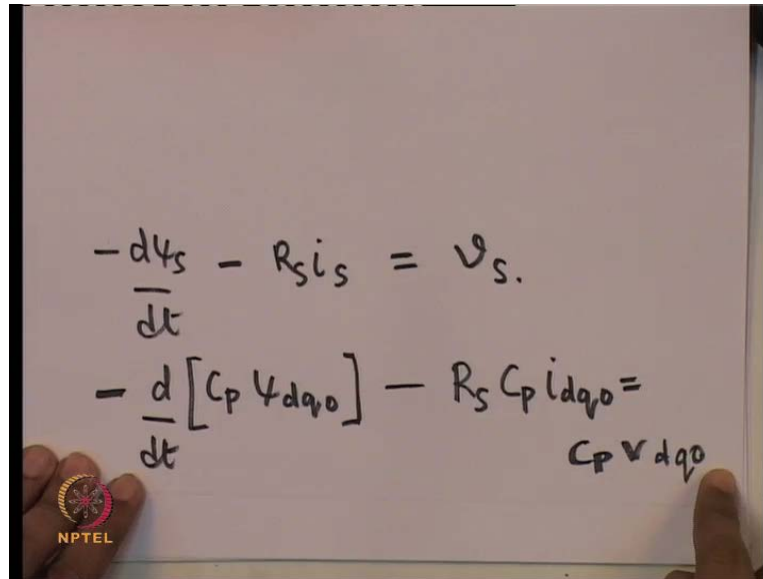 -dψs/dt - Rsis = vs.
-d/dt [Cp ψdqo] - Rs Cp idqo =
Cp vdqo
NPTEL